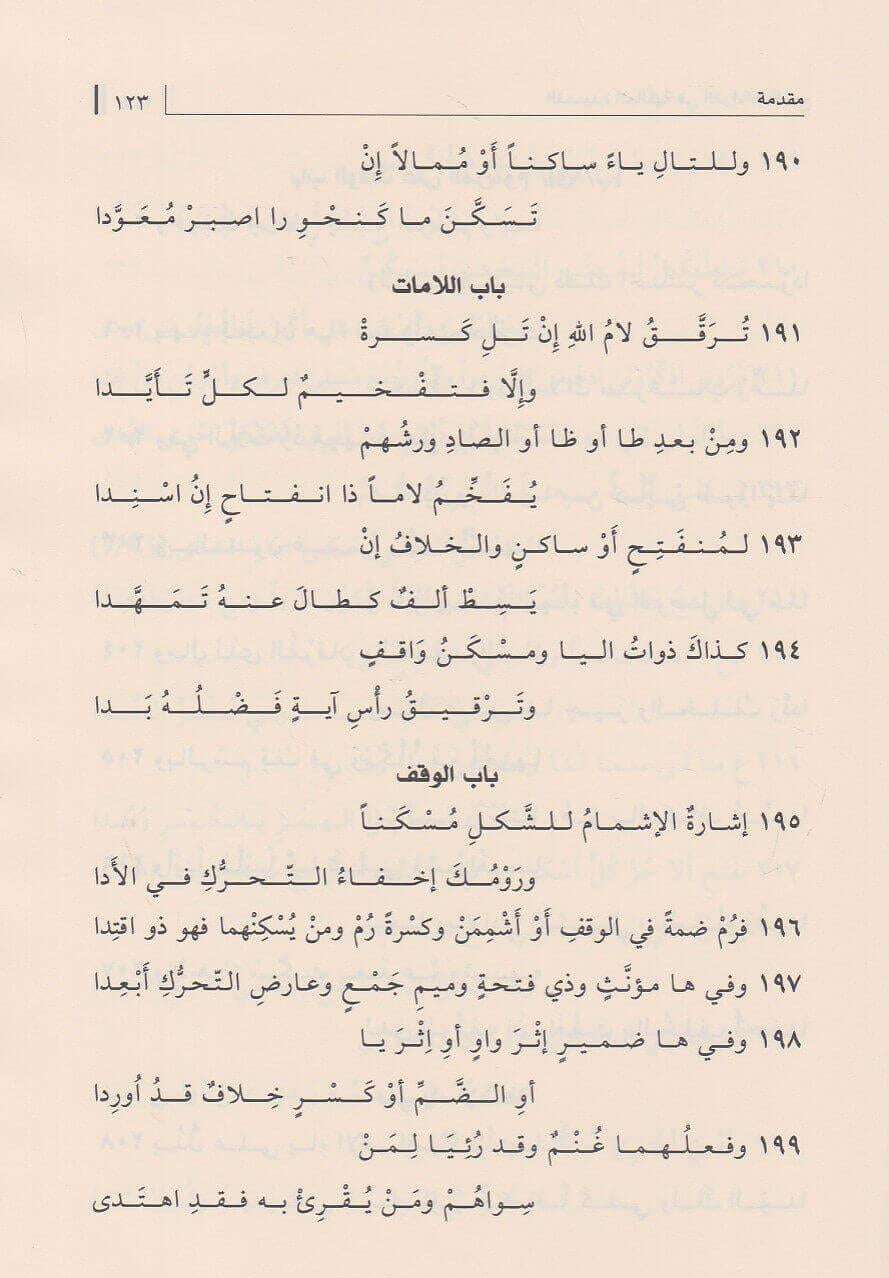 مقدمة ١٢٣
١٩٠ وللتالِ ياءً ساكناً أَوْ مُمالاً إِنْ
تَسَكَّنَ ما كَنحْوِ را اصبرْ مُعَوَّدا
باب اللامات
١٩١ تُرَقَّقُ لامُ اللهِ إِنْ تَلِ كَسرةْ
وإِلَّا فتفْخيمٌ لكلٍّ تَأَيَّدا
١٩٢ ومِنْ بعدِ طا أو ظا أو الصادِ ورشُهمْ
يُفَخِّمُ لاماً ذا انفتاحٍ إِنُ اسْنِدا
١٩٣ لمُنفَتِحٍ أَوْ ساكنٍ والخلافُ إنْ
يَسِطْ ألفٌ كطالَ عنهُ تَمَهَّدا
١٩٤ كذاكَ ذواتُ اليا ومسْكَنُ وَاقفٍ
وتَرْقيقُ رأْسِ آيةٍ فَضْلُهُ بَدا
باب الوقف
١٩٥ إشارةٌ الإشمامُ للشَّكلِ مُسْكَناً
ورَوْمُكَ إخفاءُ التّحرُّكِ في الأَدا
١٩٦ فرُمْ ضمةً في الوقفِ أَوْ أَشْمِمَنْ وكسْرةً رُمْ ومنْ يُسْكِنْهما فهو ذو اقتِدا
١٩٧ وفي ها مؤنَّثٍ وذي فتحةٍ وميمِ جَمْعٍ وعارضِ التّحرُّكِ أَبْعِدا
١٩٨ وفي ها ضميرٍ إثْرَ واوٍ أوِ اِثْرَ يا
أوِ الضَّمِّ أوْ كَسْرٍ خِلافٌ قدُ اُورِدا
١٩٩ وفعلُهما غُنْمٌ وقد رُئِيَا لِمَنْ
سِواهُمْ ومَنْ يُقْرِئْ به فقدِ اهتَدى